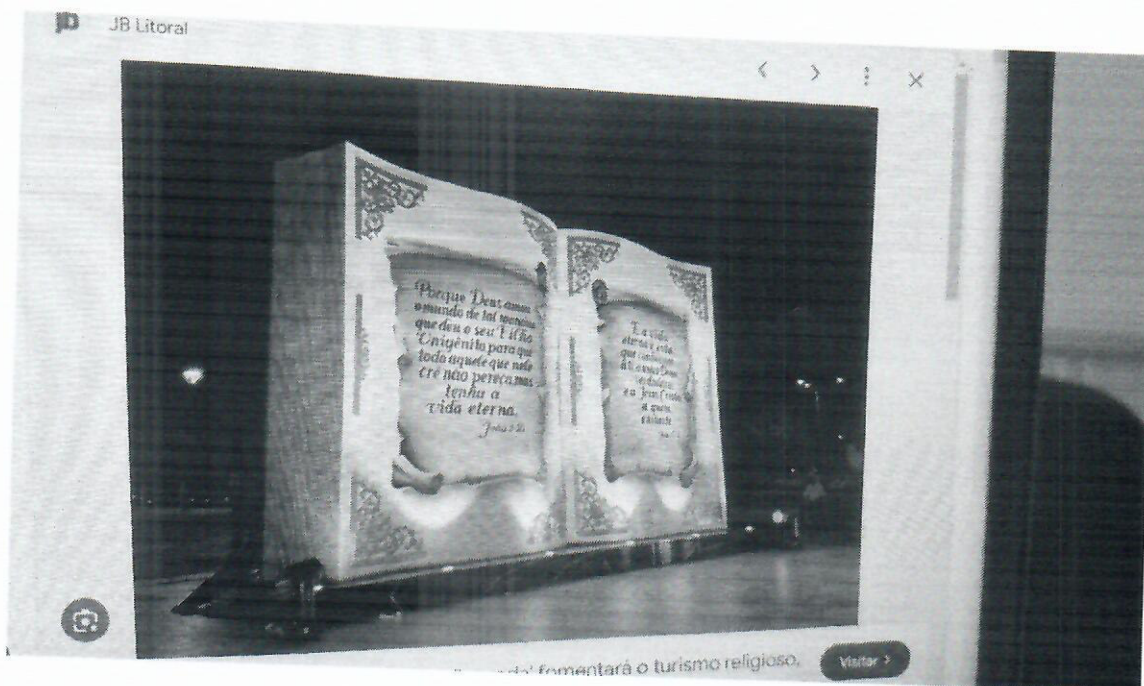 jb JB Litoral
Porque Deus amou
o mundo de tal maneira
que deu o seu Filho
Unigênito para que
todo aquele que nele
crê não pereça, mas
tenha a
vida eterna.
João
E a vida
eterna é esta,
que
a
e a Jesus Cristo
a quem
enviaste.
fomentará o turismo religioso,
Visitar >